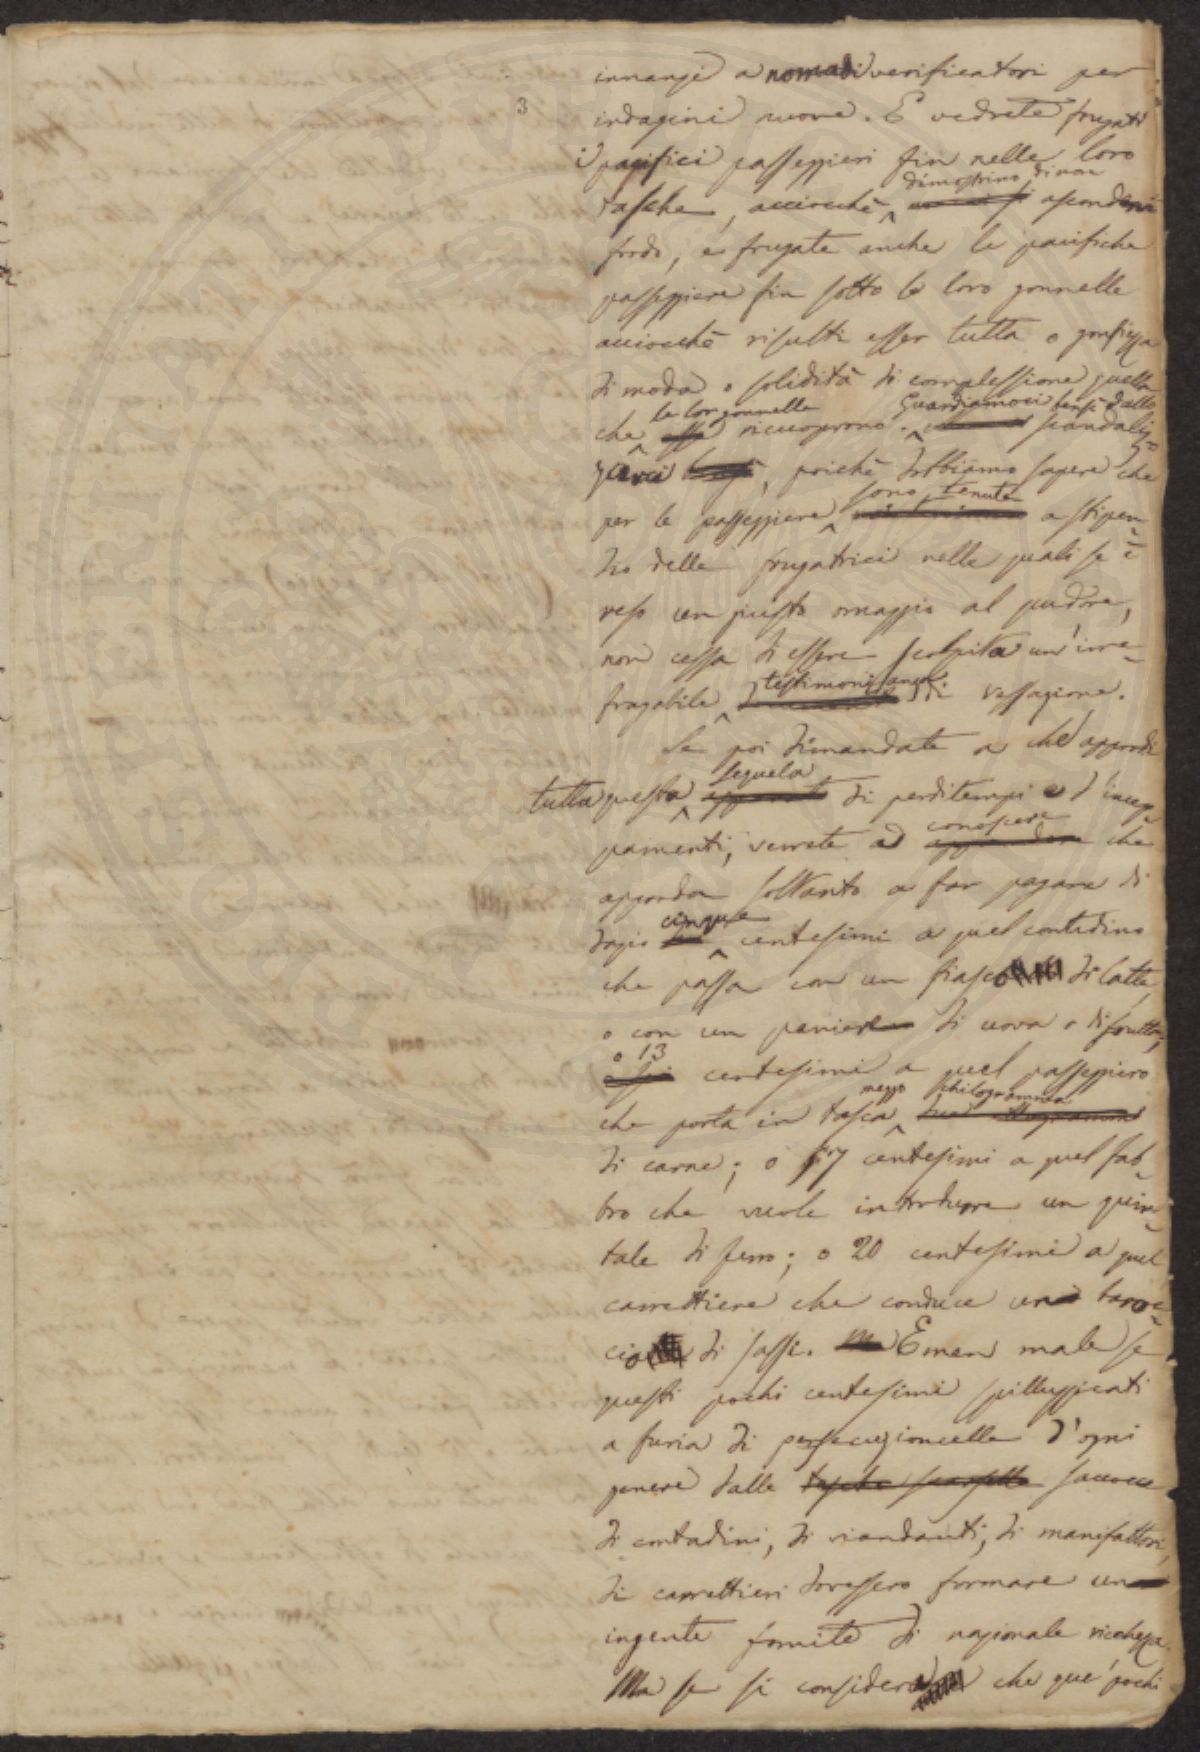 3
innanzi a nomadi verificatori per
indagini nuove. E vedrete frugati
i pacifici passeggieri fin nelle loro
dimostrino di non
tasche, acciocchè ascondere
frodo, e frugate anche le pacifiche
passeggiere fin sotto le loro gonnelle
acciocchè risulti esser tutta o gonfiezza
di moda o solidità di complessione quella
le lor gonnelle Guardiamoci bensì dallo
che ricuoprono. scandaliz=
zarci, poichè dobbiamo sapere che
sono tenute
per le passeggiere a stipen=
dio delle frugatrici nelle quali se è
reso un giusto omaggio al pudore,
non cessa di essere scolpita un'irre=
testimonianza
fragabile di vessazione.
Se poi dimandate a che approdi
sequela
tutta questa di perditempi e d'incep=
conoscere
pamenti, verrete a che
approda soltanto a far pagare di
cinque
dazio centesimi a quel contadino
che passa con un fiasco di latte,
o con un paniere di uova o di frutta;
o 13
centesimi a quel passeggiero
mezzo chilogramma
che porta in tasca
di carne; o centesimi a quel fab=
bro che vuole introdurre un quin=
tale di ferro; o 20 centesimi a quel
carrettiere che conduce un baroc=
cio di sassi. E men male se
questi pochi centesimi spilluzzicati
a furia di persecuzioncelle d'ogni
genere dalle tasche scarselle saccocce
di contadini, di viandanti, di manifattori,
di carrettieri dovessero formare un
ingente fomite di nazionale ricchezza.
Ma se si considera che que' pochi